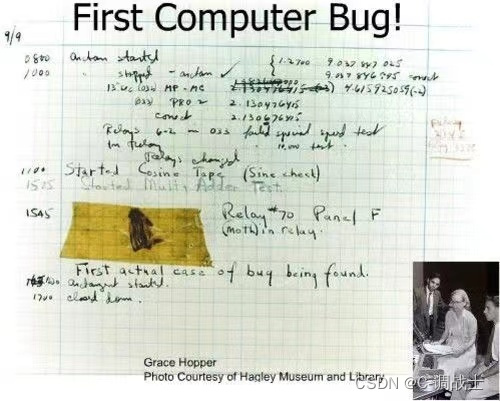 First Computer Bug!
9/9
0800 Antan started
1000 " stopped - antan ✓ { 1.2700 9.037 847 025
9.037 846 995 correct
13"uc (032) MP-MC 2.130476415 4.615925059(-2)
(033) PRO 2 2.130476415
correct 2.130676415
Relays 6-2 in 033 failed special speed test
in relay " 10,000 test.
Relays changed
1100 Started Cosine Tape (Sine check)
1525 Started Multi Adder Test.
1545 Relay #70 Panel F
(moth) in relay.
First actual case of bug being found.
antangent started.
1700 closed down.
Grace Hopper
Photo Courtesy of Hagley Museum and Library
CSDN @C-调战士